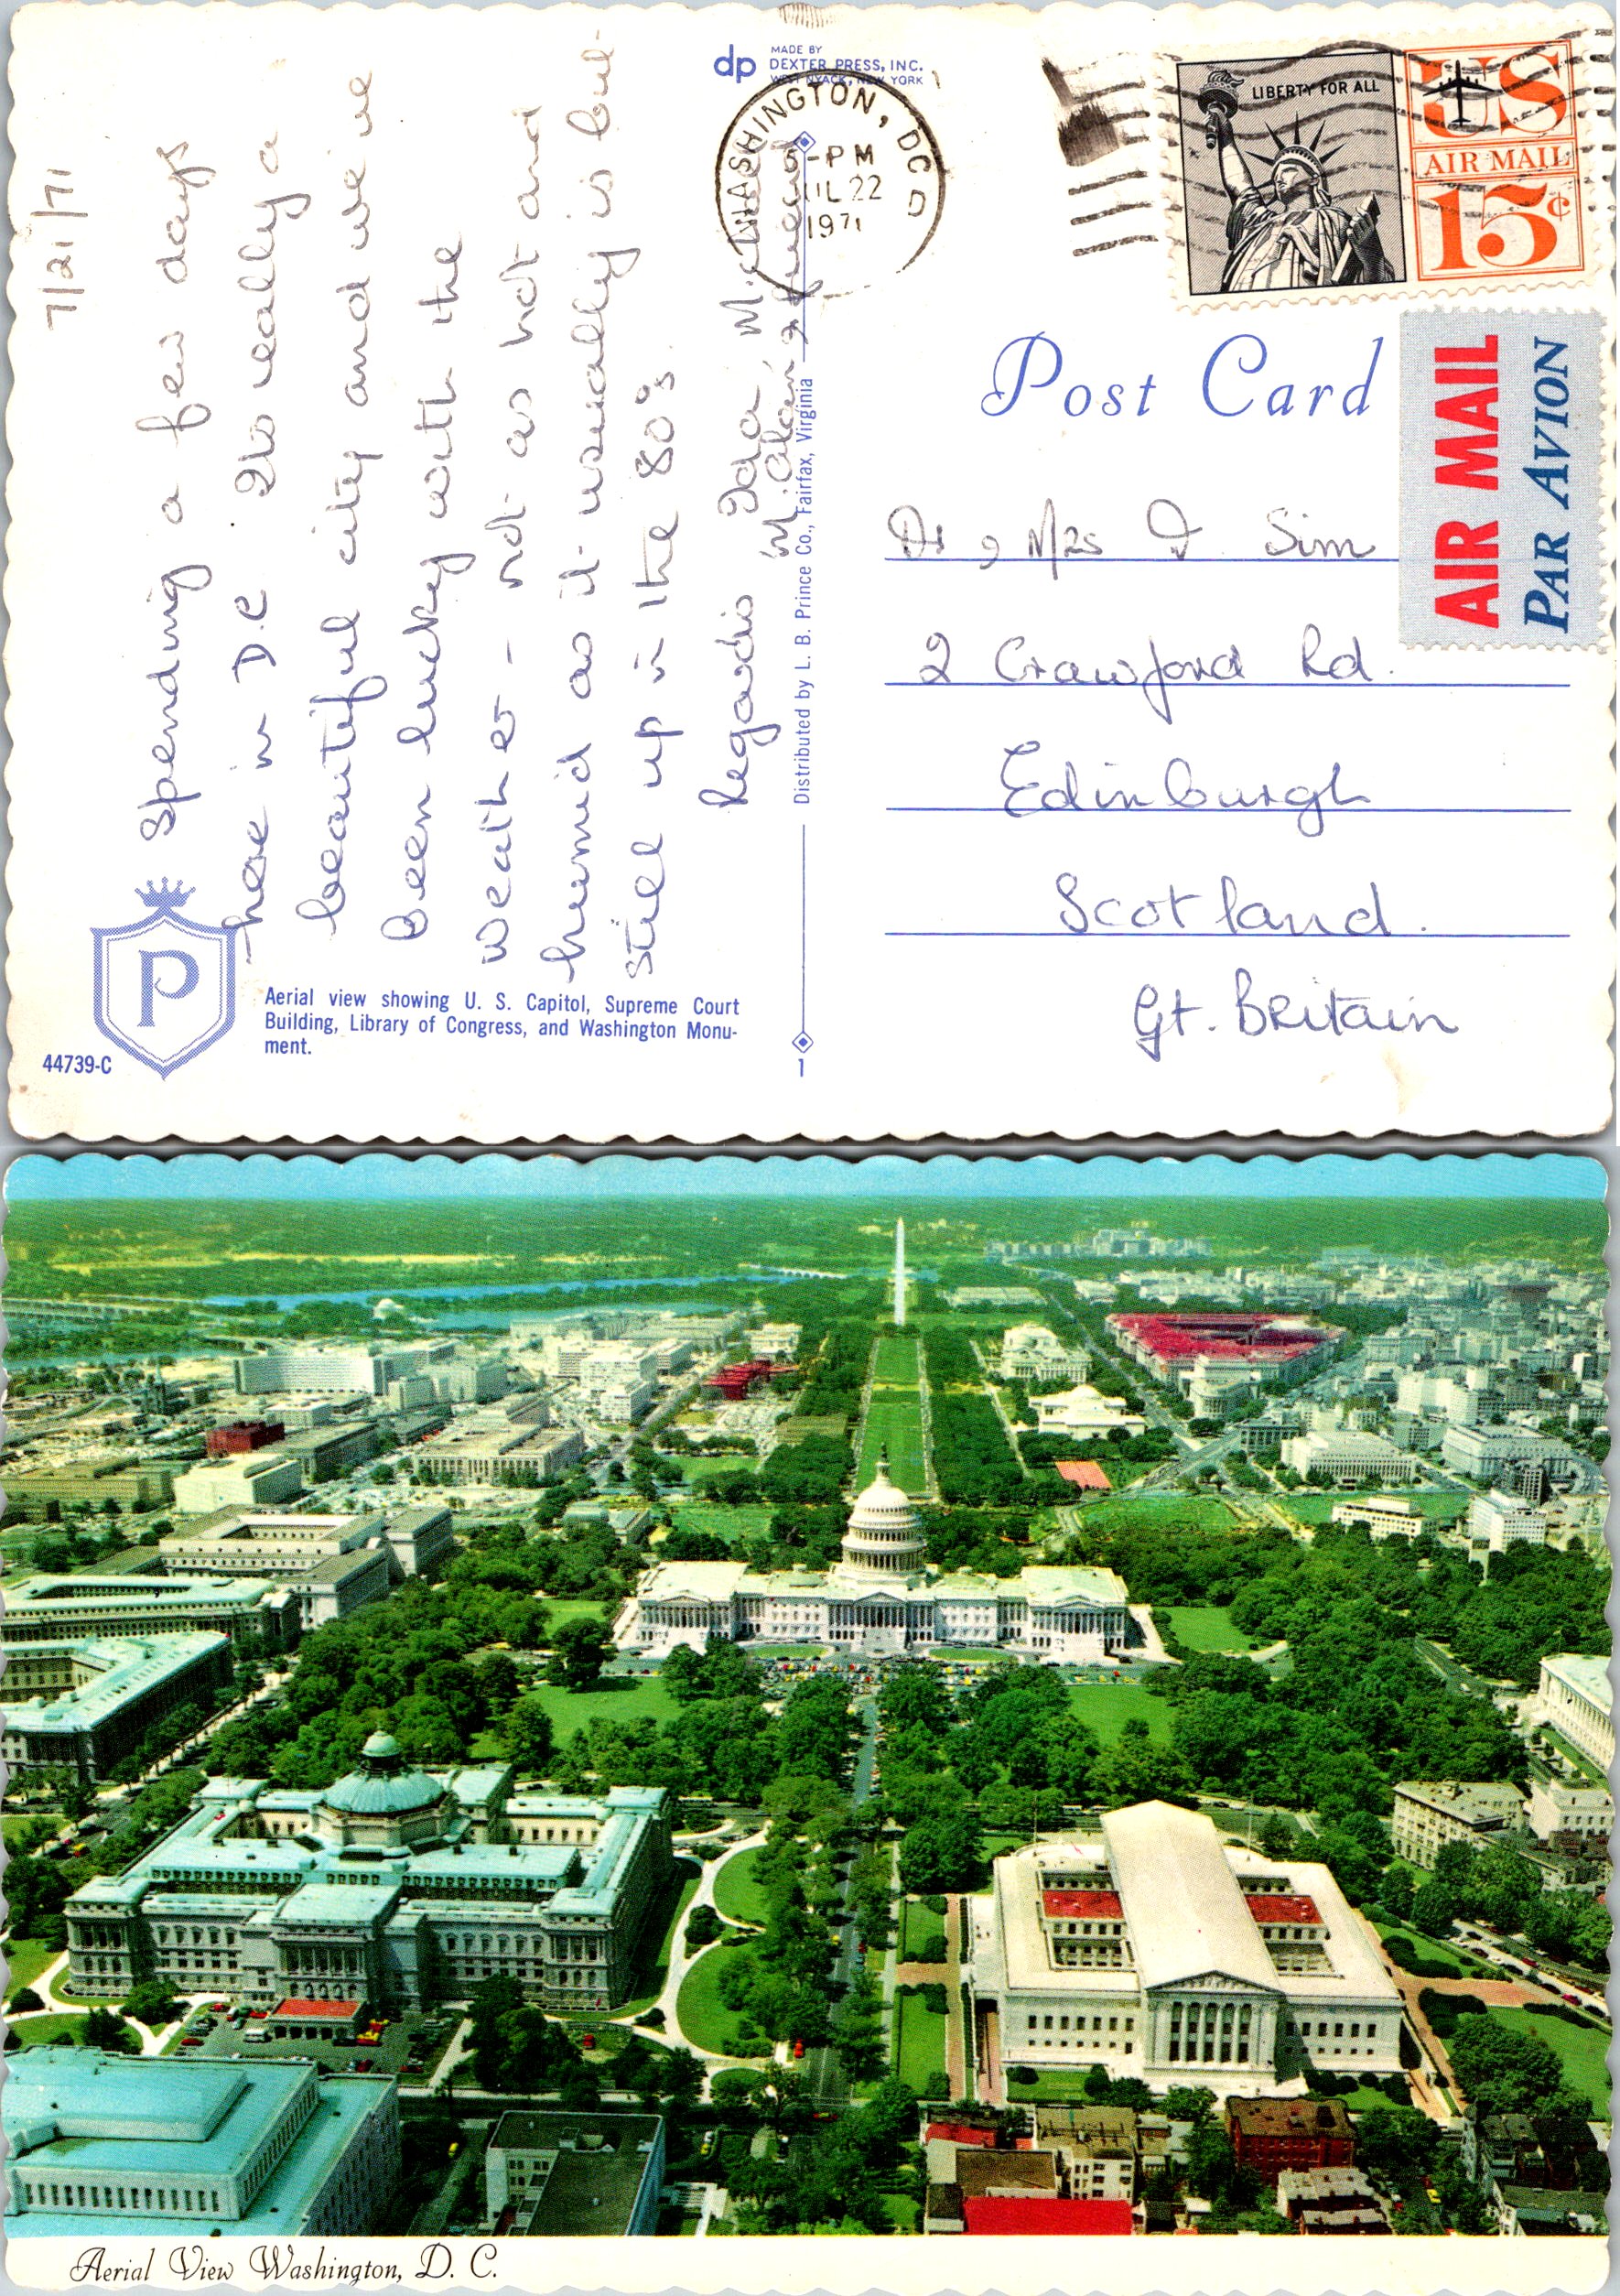 7/21/71
Spending a few days
here in D.C. Its really a
beautiful city and we've
been lucky with the
weather - not as hot and
humid as it usually is but
still up in the 80's.
Regards Ida, M.
M. Alan,
P
44739-C
Aerial view showing U. S. Capitol, Supreme Court
Building, Library of Congress, and Washington Monu-
ment.
dp
MADE BY
DEXTER PRESS, INC.
WEST NYACK, NEW YORK
Distributed by L. B. Prince Co., Fairfax, Virginia
1
WASHINGTON, DC
5-PM
JUL 22
1971
D
LIBERTY FOR ALL
US
AIR MAIL
15¢
Post Card
AIR MAIL
PAR AVION
Dr , Mrs D. Sim
2 Crawford Rd.
Edinburgh
Scotland.
Gt. Britain
Aerial View Washington, D. C.